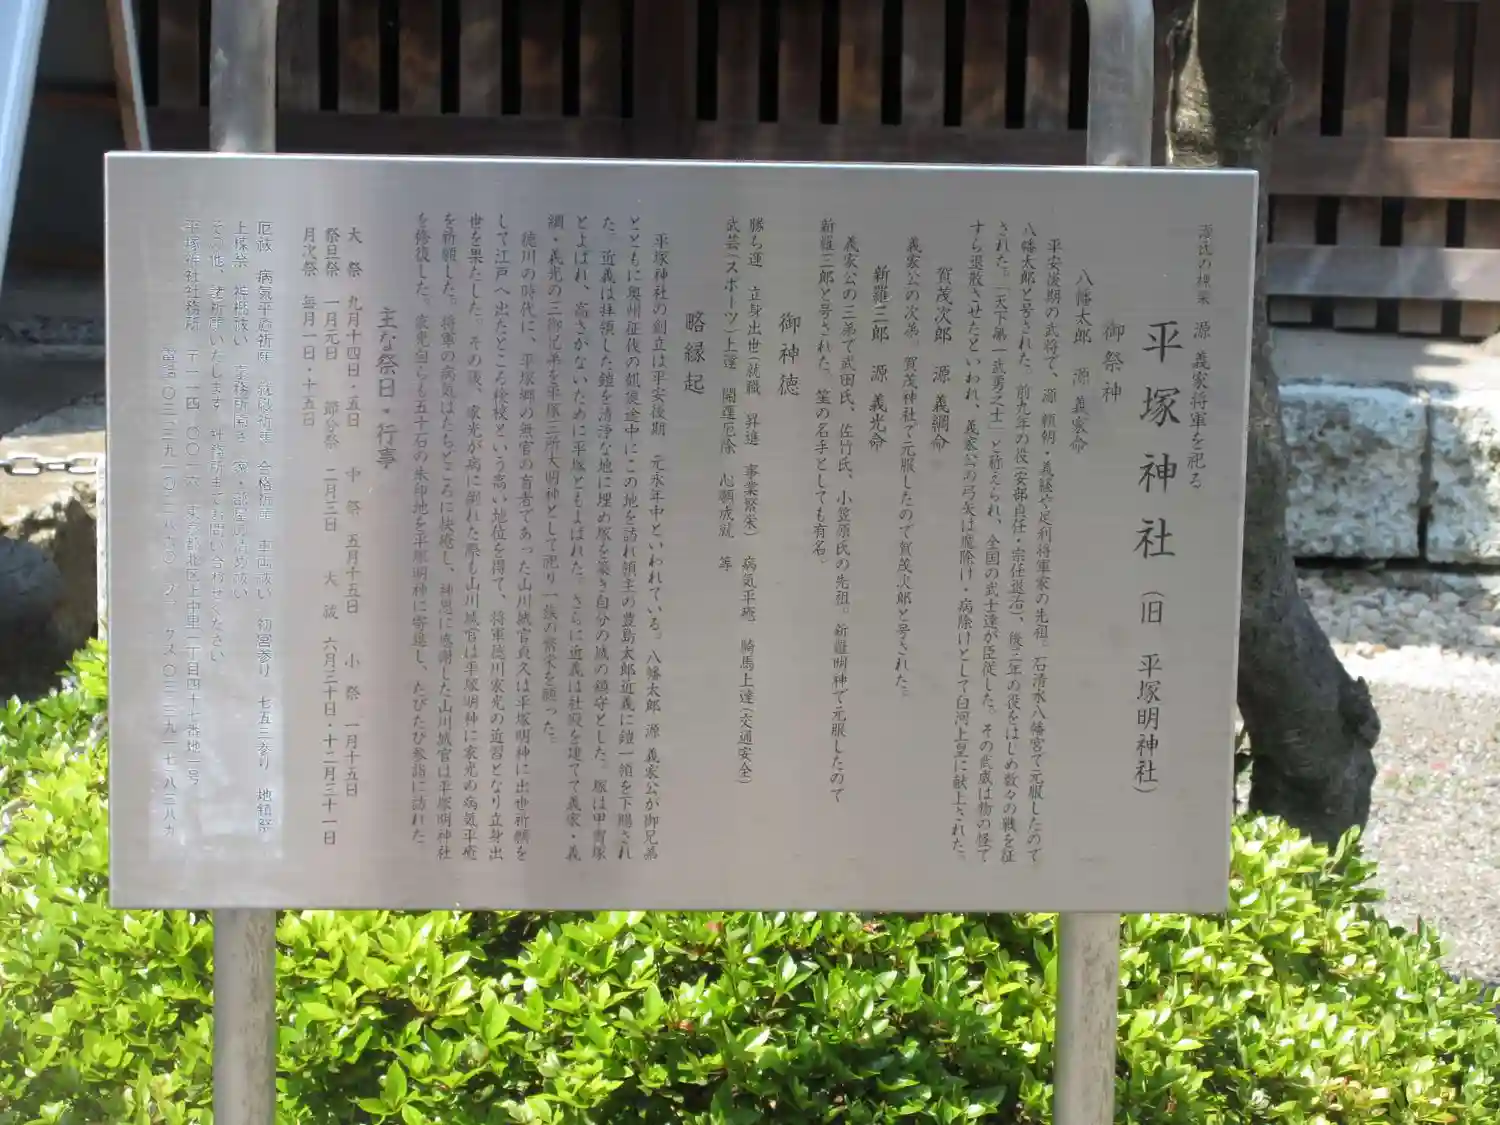 源氏の棟梁 源 義家将軍を祀る
平塚神社（旧 平塚明神社）
御祭神
八幡太郎 源 義家命
平安後期の武将で、源 頼朝・義経や足利将軍家の先祖。石清水八幡宮で元服したので
八幡太郎と号された。前九年の役（安部貞任・宗任退治）、後三年の役をはじめ数々の戦を征
された。「天下第一武勇之士」と称えられ、全国の武士達が臣従した。その武威は物の怪で
すら退散させたといわれ、義家公の弓矢は魔除け・病除けとして白河上皇に献上された。
賀茂次郎 源 義綱命
義家公の次弟。賀茂神社で元服したので賀茂次郎と号された。
新羅三郎 源 義光命
義家公の三弟で武田氏、佐竹氏、小笠原氏の先祖。新羅明神で元服したので
新羅三郎と号された。笙の名手としても有名。
御神徳
勝ち運 立身出世（就職 昇進 事業繁栄） 病気平癒 騎馬上達（交通安全）
武芸（スポーツ）上達 開運厄除 心願成就 等
略縁起
平塚神社の創立は平安後期 元永年中といわれている。八幡太郎 源 義家公が御兄弟
とともに奥州征伐の凱旋途中にこの地を訪れ領主の豊島太郎近義に鎧一領を下賜され
た。近義は拝領した鎧を清浄な地に埋め塚を築き自分の城の鎮守とした。塚は甲冑塚
とよばれ、高さがないために平塚ともよばれた。さらに近義は社殿を建てて義家・義
綱・義光の三御兄弟を平塚三所大明神として祀り一族の繁栄を願った。
徳川の時代に、平塚郷の無官の盲者であった山川城官貞久は平塚明神に出世祈願を
して江戸へ出たところ検校という高い地位を得て、将軍徳川家光の近習となり立身出
世を果たした。その後、家光が病に倒れた際も山川城官は平塚明神に家光の病気平癒
を祈願した。将軍の病気はたちどころに快癒し、神恩に感謝した山川城官は平塚明神社
を修復した。家光自らも五十石の朱印地を平塚明神に寄進し、たびたび参詣に訪れた。
主な祭日・行事
大 祭 九月十四日・五日 中 祭 五月十五日 小 祭 一月十五日
祭旦祭 一月元日 節分祭 二月三日 大 祓 六月三十日・十二月三十一日
月次祭 毎月一日・十五日
厄祓 病気平癒祈願 就職祈願 合格祈願 車両祓い 初宮参り 七五三参り 地鎮祭
上棟祭 神棚祓い 事務所開き 家・部屋の清め祓い
その他、諸祈願いたします 社務所までお問い合わせください
平塚神社社務所 〒一一四-〇〇一六 東京都北区上中里一丁目四十七番地一号